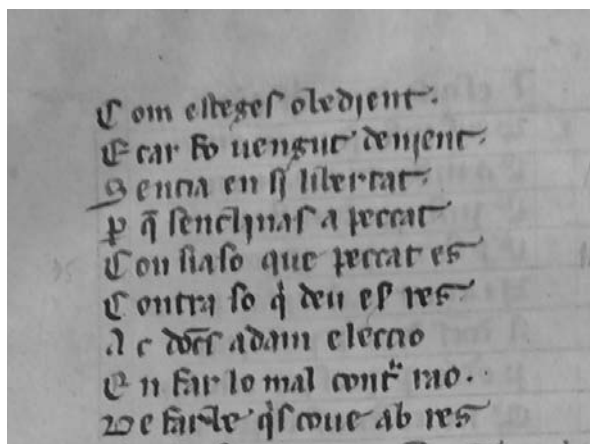 C om esteges obedient.
E car fo uengut denient.
S entia en si libertat.
P̲ q̄ senclinas a peccat
C on siaso que peccat es
C ontra so q̇ deu es res.
A c docs̄ adam eleccio
E n far lo mal cont̾ rao.
De farle q̇s coue ab res